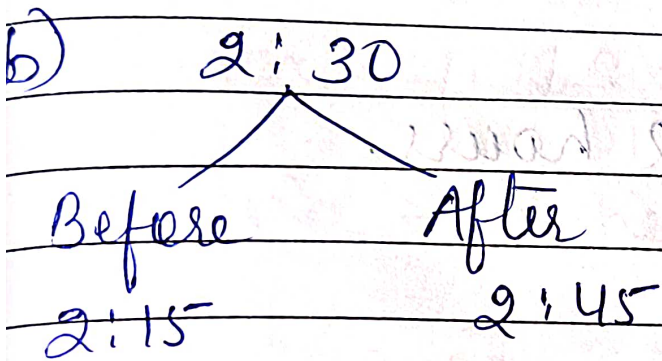 b) 2:30
Before After
2:15 2:45